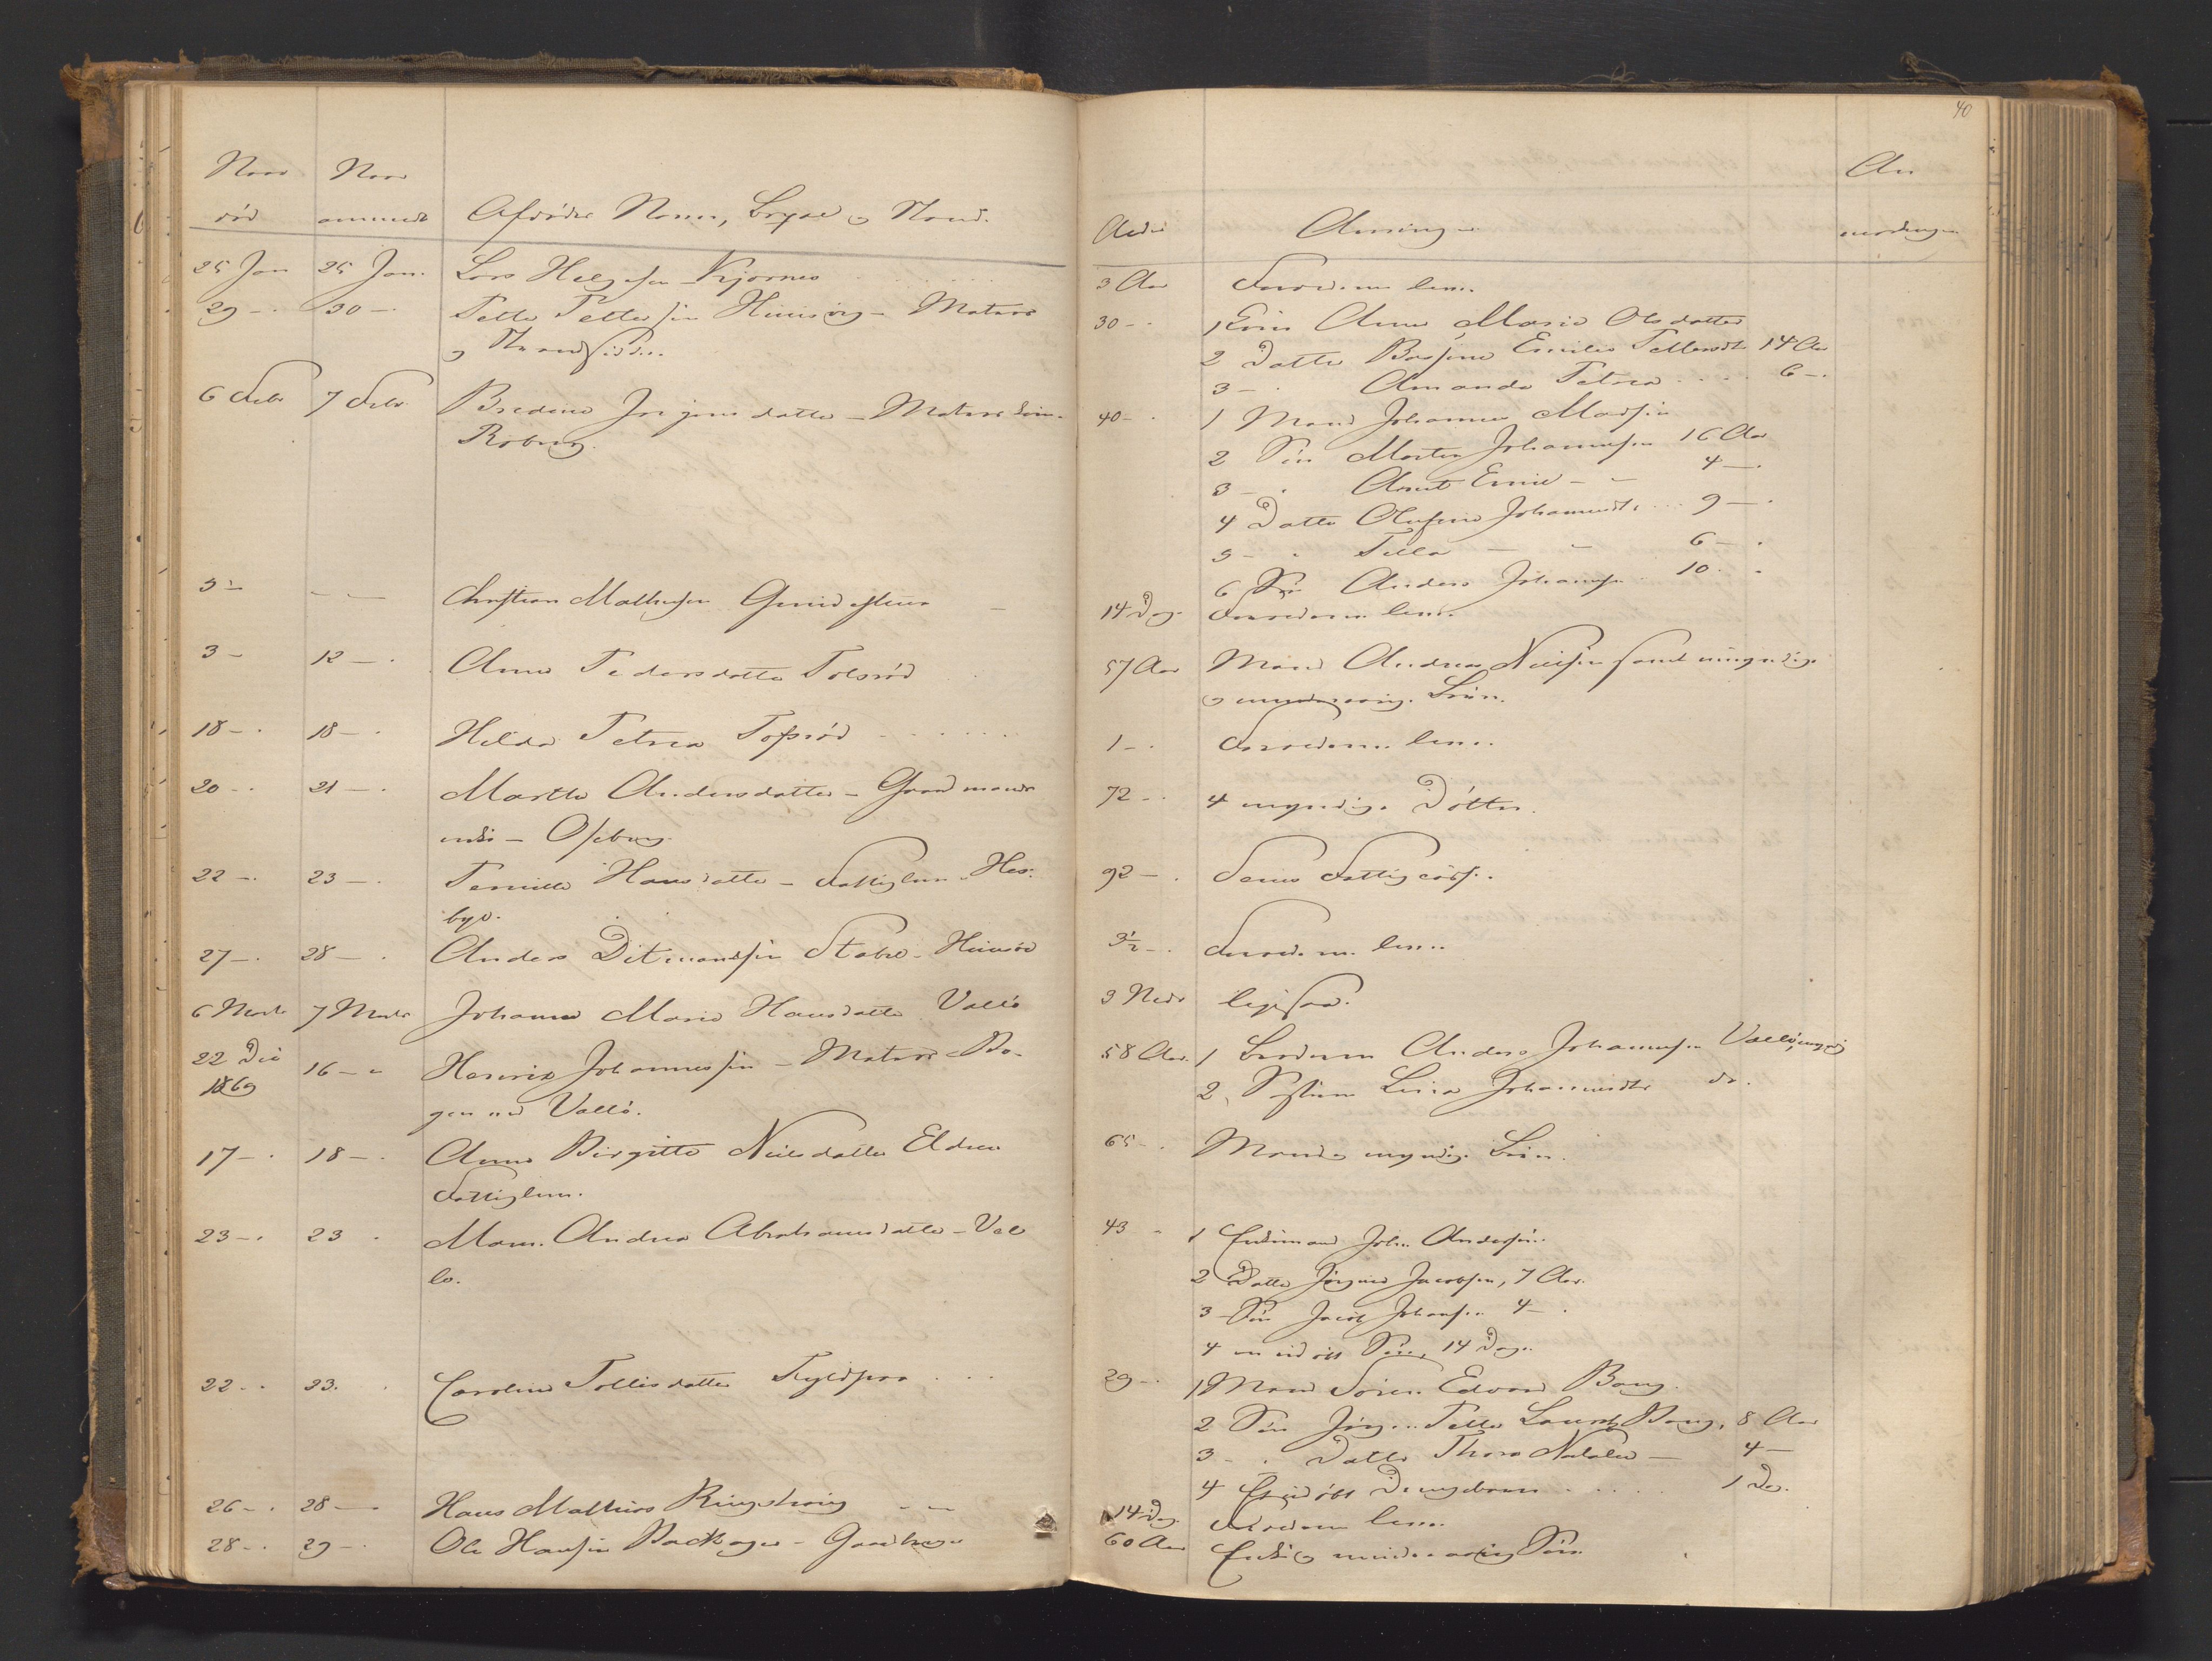 Naar
Naar
død
anmeldt
Afdødes Navn, Bopæl og Stand.
25 Jan 25 Jan. Lars Helgesen Kjærnes
29 - . 30 - . Petter Pettersen Husvig - Matros
og Strandsidder.
6 Febr 7 Febr Bredine Jørgensdatter - Matros
Roberg.
5 - Christian Mathesen
3 - 12 - . Anne Pedersdatter Tolsrød
18 - . 18 - . Hilda Petrea Tolsrød
20 - . 21 - . Marthe Andersdatter - Gaardmands
enke - Oseberg.
22 - . 23 - . Pernille Hansdatter - Fattiglem Hes-
bye.
27 - . 28 - . Anders Ditmandsen Stabo - Huusø
6 Marts 7 Marts Johanne Marie Hansdatter Vallø
22 De
1869
16 - " Henrik Johannessen - Matros Ba-
gen ved Vallø.
17 - . 18 - . Anne Birgitte Nielsdatter
Fattiglem.
23 - . 23 . Mar. Andrea Abrahamsdatter - Val
lø.
22 . . 23. . Caroline Tollefsdatter
26 - . 28 - Hans Mathias Ringshoug
28 - . 29 - . Ole Hansen Backager - Gaardbruger
40
An
Alder
Arvinger
mærkninger
3 Aar Forældrene leve.
30 - . 1 Enke Anne Marie Olsdatter
2 Datter Emilie Pettersdt 14 Aar
3 - . Amanda Petrea . . . . 6 - .
40 - . 1 Mand Johannes Madsen
2 Søn Morten Johannesen 16 Aar
3 - . Anut Emil - - 4 - .
4 Datter Olufine Johannesdt . . . 9 - .
5 - . Tilla - - 6 - .
6 Søn Anders Johannesen . 10 . .
14 Dag. Forældrene leve.
57 Aar Mand Andreas Nielsen samt myndige
og Børn.
1 - . Forældrene leve.
72 - . 4 myndige Døttre.
92 - . Tønsberg Fattigvæs.
3½ - . Forældrene leve.
3 Uger ligesaa.
58 Aar. 1 Broderen Anders Johannesen Vallø, myndig
2, Søsteren Lina Johannesdtr do.
65 - . Mand og myndige Børn.
43 - 1 Enkemand Joh. Andersen.
2 Datter Jørgine Jacobsen, 7 Aar.
3 Søn Jacob Johansen 4 - .
4 en udøbt Søn, 14 Dage.
29 - . 1 Mand Søren Edvard Bang.
2 Søn Jørgen Petter Lauritz Bang, 8 Aar
3 - . Datter Thora Natalie - 4 -
4 Et udøbt Drengebarn . . . . . 1 Da.
14 Dag. Forældrene leve.
60 Aar Enke og mindreaarig Søn.